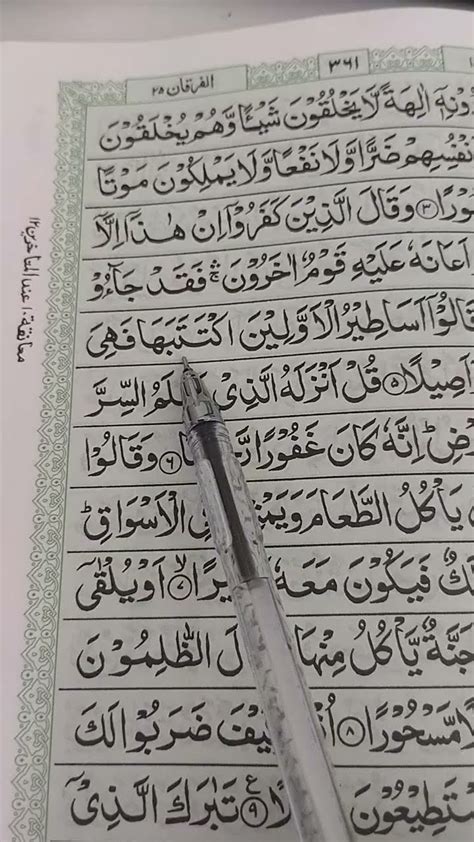 الفرقان ٢٥
٣٦١
اٰلِهَةً لَّا يَخْلُقُوْنَ شَيْـًٔا وَّهُمْ يُخْلَقُوْنَ
ضَرًّا وَّلَا نَفْعًا وَّلَا يَمْلِكُوْنَ مَوْتًا
٣ وَقَالَ الَّذِيْنَ كَفَرُوْۤا اِنْ هٰذَاۤ اِلَّاۤ
عَلَيْهِ قَوْمٌ اٰخَرُوْنَ ۛۚ فَقَدْ جَآءُوْ
اَسَاطِيْرُ الْاَوَّلِيْنَ اكْتَتَبَهَا فَهِيَ
اَصِيْلًا ٥ قُلْ اَنْزَلَهُ الَّذِيْ السِّرَّ
اِنَّهٗ كَانَ غَفُوْرًا ٦ وَقَالُوْا
يَاْكُلُ الطَّعَامَ الْاَسْوَاقِ ؕ
فَيَكُوْنَ مَعَهٗ ۙ ٧ اَوْ يُلْقٰۤى
جَنَّةٌ يَّاْكُلُ مِنْهَا الظّٰلِمُوْنَ
مَّسْحُوْرًا ٨ ضَرَبُوْا لَكَ
ع ٩ تَبٰرَكَ الَّذِيْۤ
معانقة ١٠ عند المتاخرين ١٢